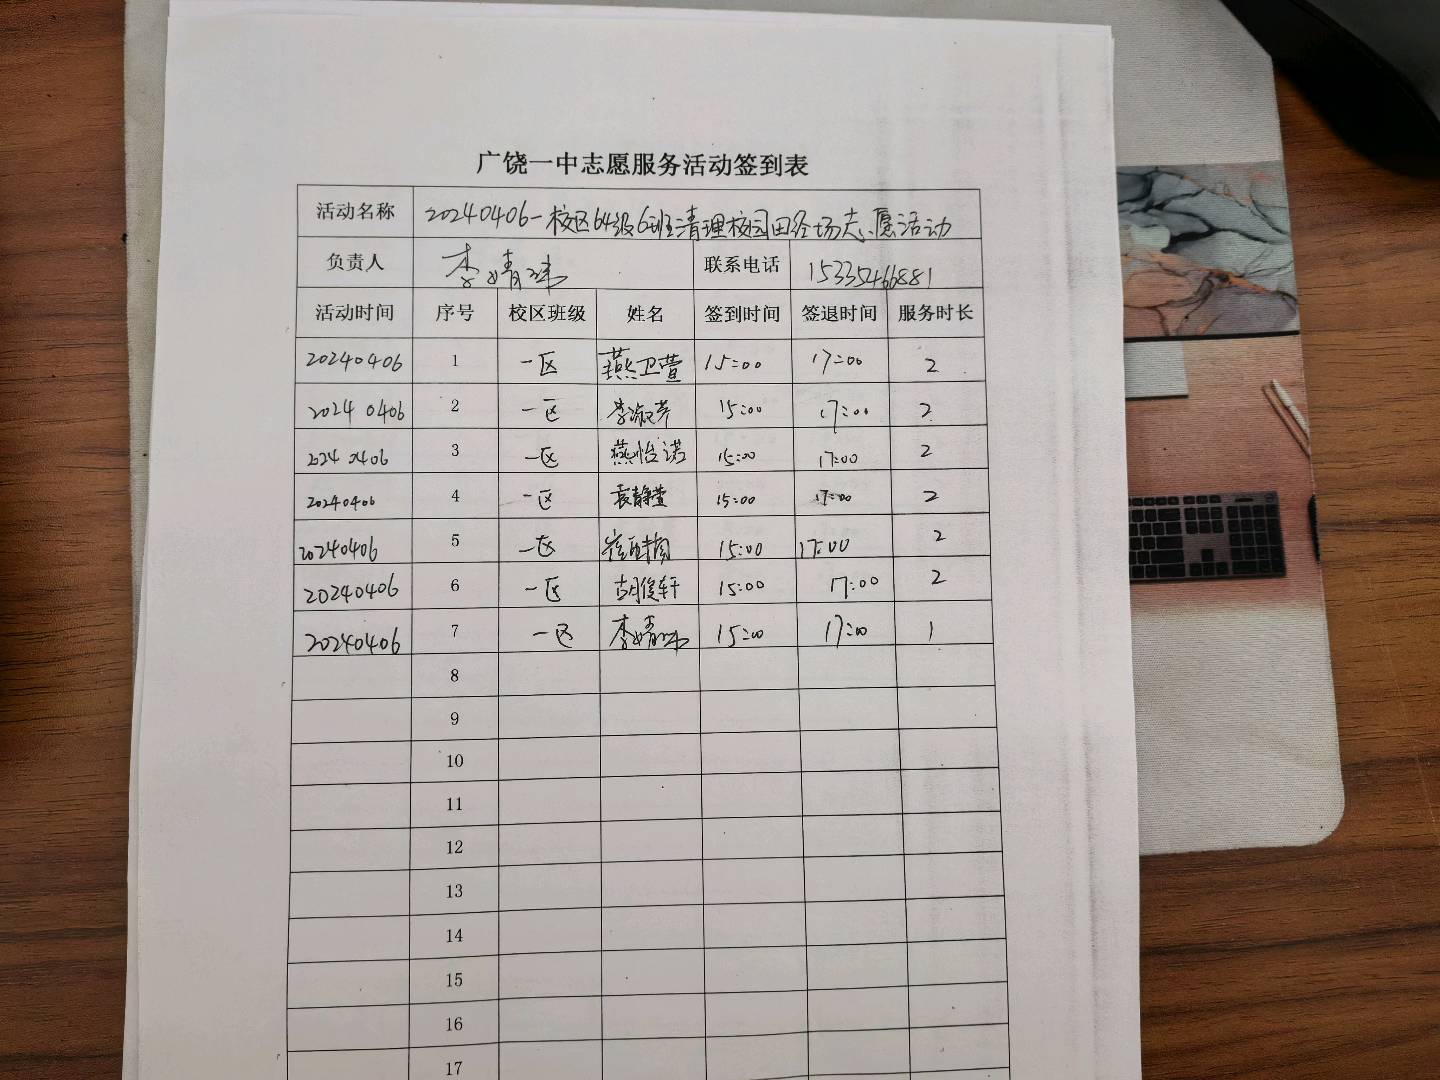 广饶一中志愿服务活动签到表
活动名称 20240406一校区64级6班清理校园田径场志愿活动
负责人 李婧玮 联系电话 15335466881
活动时间 序号 校区班级 姓名 签到时间 签退时间 服务时长
20240406 1 一区 燕卫萱 15:00 17:00 2
20240406 2 一区 李淑芹 15:00 17:00 2
20240406 3 一区 燕怡诺 15:00 17:00 2
20240406 4 一区 袁静萱 15:00 17:00 2
20240406 5 一区 15:00 17:00 2
20240406 6 一区 胡俊轩 15:00 17:00 2
20240406 7 一区 李婧玮 15:00 17:00 1
8
9
10
11
12
13
14
15
16
17